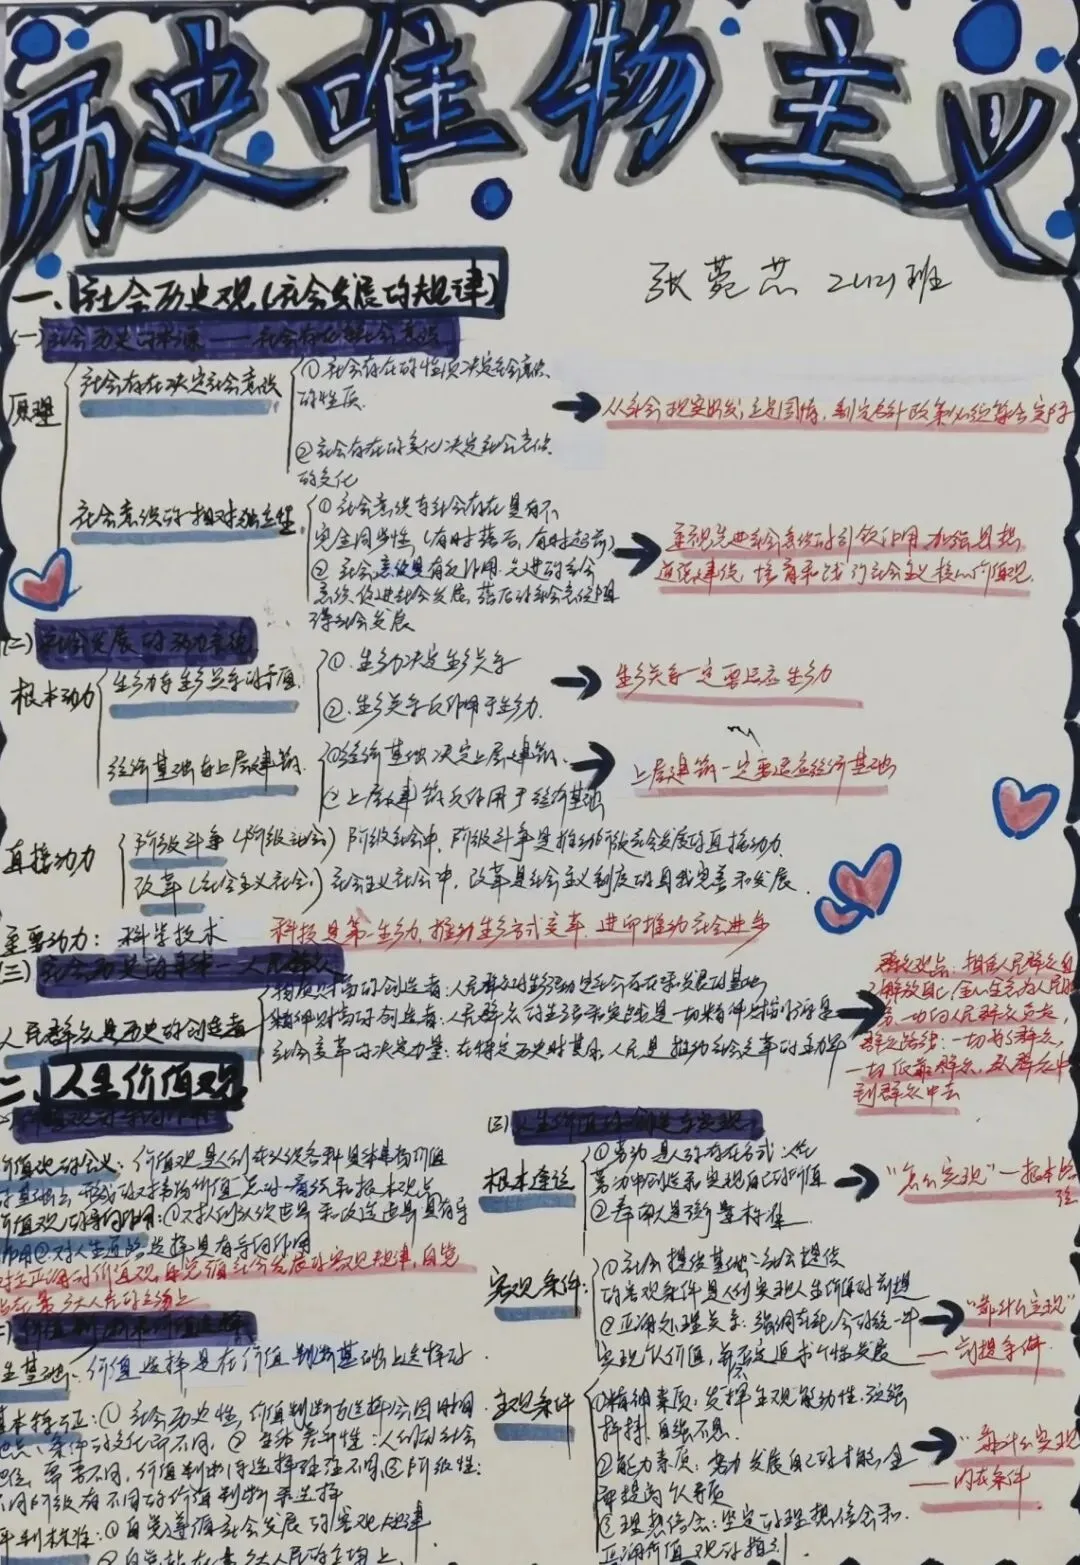 历史唯物主义
一、社会历史观(社会发展的规律)
张菀芯 2421班
(一)社会历史的本源——社会存在与社会意识
原理
社会存在决定社会意识
①社会存在的性质决定社会意识
的性质.
②社会存在的变化决定社会意识
的变化
从社会现实出发,立足国情,制定方针政策必须符合实际
社会意识的相对独立性
①社会意识与社会存在具有不
完全同步性(有时落后,有时超前)
②社会意识具有反作用.先进的社会
意识促进社会发展,落后的社会意识阻
碍社会发展
重视先进社会意识的引领作用 加强思想
道德建设,培育和践行社会主义核心价值观
(二)社会发展的动力系统
根本动力
生产力与生产关系的矛盾
①.生产力决定生产关系
②.生产关系反作用于生产力.
生产关系一定要适应生产力
经济基础与上层建筑.
①经济基础决定上层建筑.
②上层建筑反作用于经济基础
上层建筑一定要适应经济基础
直接动力
阶级斗争(阶级社会)阶级社会中,阶级斗争是推动阶级社会发展的直接动力.
改革(社会主义社会)社会主义社会中,改革是社会主义制度的自我完善和发展.
重要动力:科学技术 科技是第一生产力,推动生产方式变革,进而推动社会进步
(三)社会历史的主体—人民群众
人民群众是历史的创造者
物质财富的创造者:人民群众的生产活动是社会存在和发展的基础
精神财富的创造者:人民群众的生活和实践是一切精神
社会变革的决定力量:在特定历史时其,人民是推动社会变革的主力军
群众观点:相信人民群众自
己解放自己,全心全意为人民服
务,一切向人民群众负责,
群众路线:一切为了群众,
一切依靠群众,从群众中
到群众中去
二、人生价值观
价值观的含义:价值观是人们在认识各种具体事物价值
的基础上,形成的对事物价值的总的看法和根本观点
价值观的导向作用:①对人们认识世界和改造世界具有导
作用②对人生道路选择具有导向作用
树立正确的价值观,自觉遵循社会发展的客观规律,自觉
站在最广大人民的立场上
(二)价值判断和价值选择
基础:价值选择是在价值判断基础上选择的.
基本特征:①社会历史性,价值判断与选择会因时间
地点、条件的变化而不同,②主体差异性:人们的社会
地位,需要不同,价值判断与选择往往不同③阶级性:
不同阶级有不同的价值判断和选择
判标准:①自觉遵循社会发展的客观规律
②自觉站在最广大人民的立场上.
(三)人生价值的创造与实现
根本途径
①劳动是人的存在方式:人在
劳动中创造和实现自己的价值
②奉献大是衡量标准.
"怎么实现"—根本途
径
客观条件:
①社会提供基础:社会提供
的客观条件是人们实现人生价值的前提
②正确处理关系:强调在社会的统一中
实现个人价值,并不否定追求个性发展
"靠什么实现"
—前提条件.
主观条件
①精神素质:发挥主观能动性.顽强
拼搏.自强不息.
②能力素质:努力发展自己的才能,全
面提高个人素质
③理想信念:坚定的理想信念和.
正确价值观的指引.
"靠什么实现
—内在条件